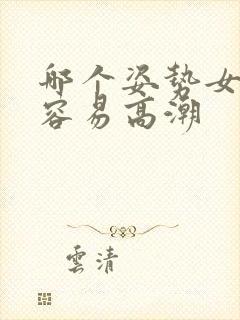 哪个姿势女
容易高潮
雲清